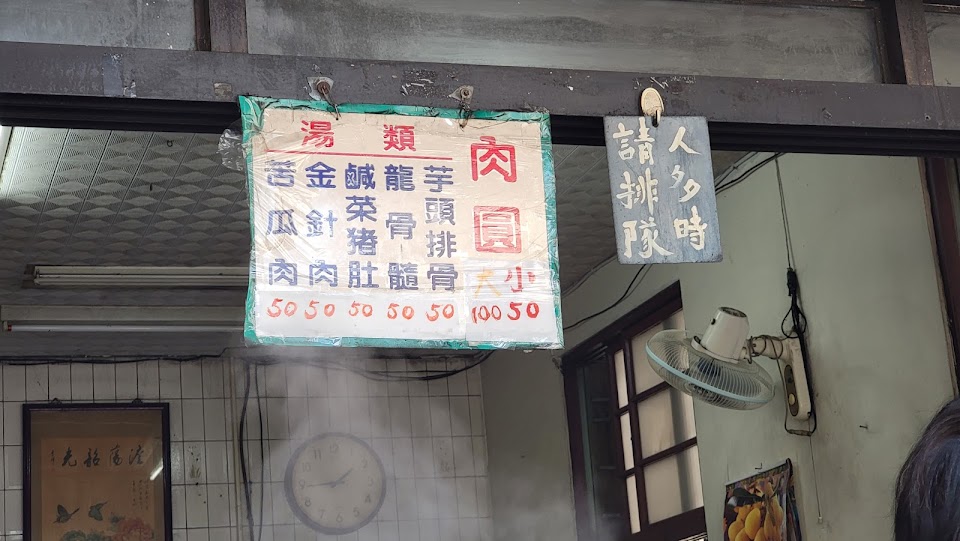 肉圓
小 50
大 100
湯類
芋頭排骨 50
龍骨髓 50
鹹菜豬肚 50
金針肉 50
苦瓜肉 50
人多多時
請排隊